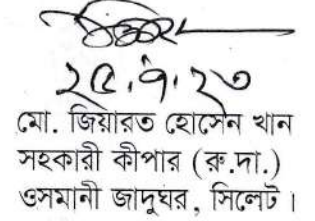 ২৫.৭.২৩
মো. জিয়ারত হোসেন খান
সহকারী কীপার (রু.দা.)
ওসমানী জাদুঘর, সিলেট।